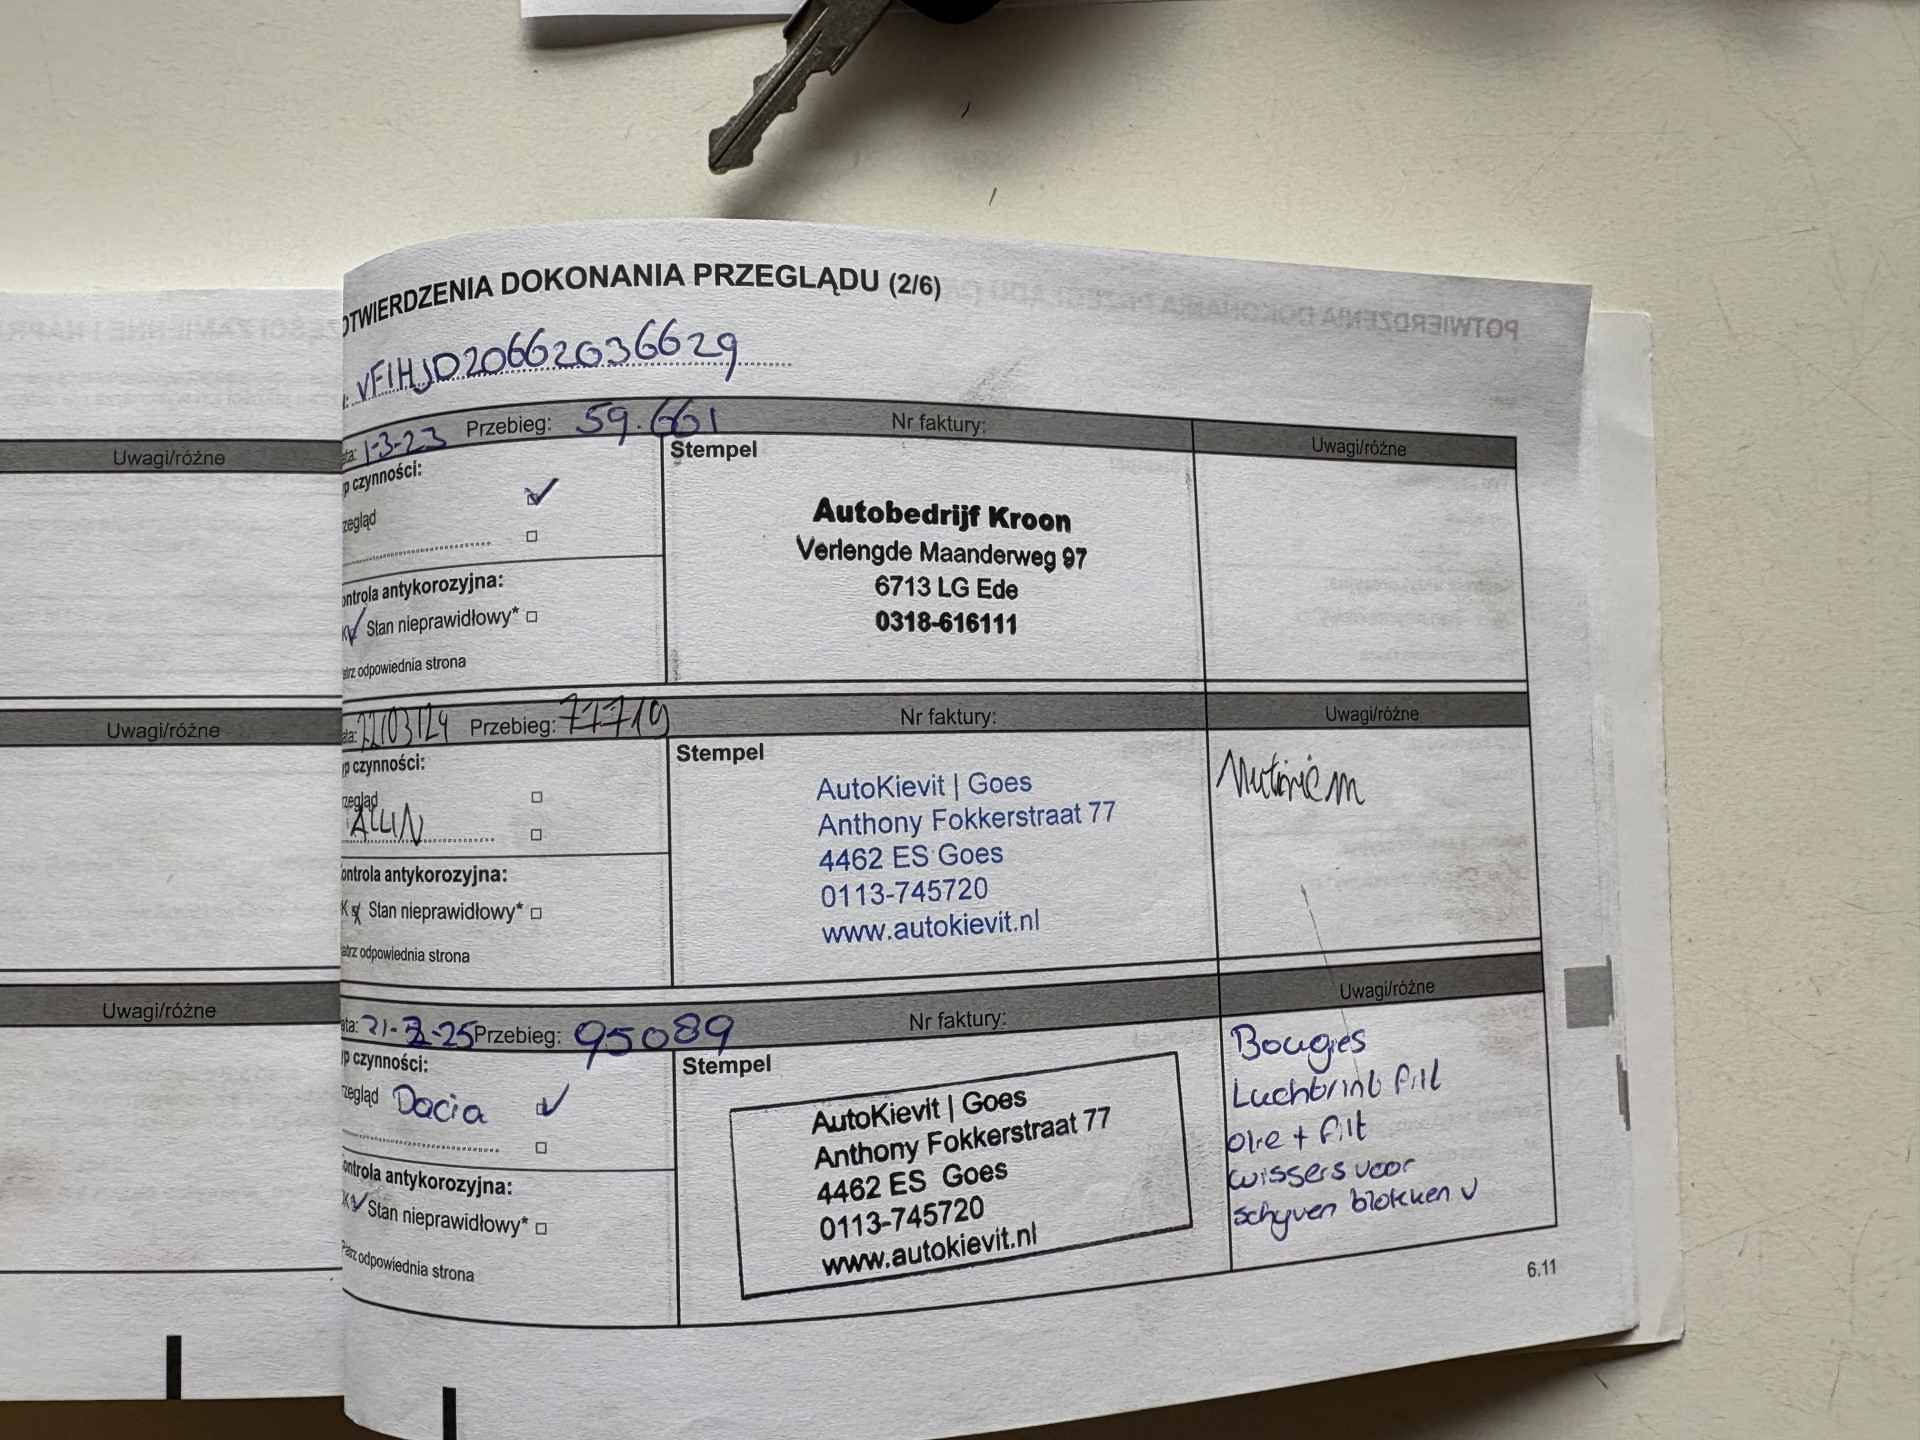 OTWIERDZENIA DOKONANIA PRZEGLĄDU (2/6)
VF1HJD20662036629
Uwagi/różne
Uwagi/różne
Uwagi/różne
ata: 1-3-23 Przebieg: 59.661 Nr faktury: Uwagi/różne
p czynności:
Stempel
zegląd
Autobedrijf Kroon
Verlengde Maanderweg 97
6713 LG Ede
0318-616111
ontrola antykorozyjna:
K Stan nieprawidłowy*
atrz odpowiednia strona
ata: 22/03/24 Przebieg: 77719 Nr faktury: Uwagi/różne
p czynności:
Stempel
zegląd
AutoKievit | Goes
Anthony Fokkerstraat 77
4462 ES Goes
0113-745720
www.autokievit.nl
ontrola antykorozyjna:
K Stan nieprawidłowy*
atrz odpowiednia strona
ata: 21-2-25 Przebieg: 95089 Nr faktury: Uwagi/różne
p czynności:
Stempel
zegląd Dacia
AutoKievit | Goes
Anthony Fokkerstraat 77
4462 ES Goes
0113-745720
www.autokievit.nl
Bougies
Luchtbrint filt
olie + filt
wissers voor
schijven blokken v
ontrola antykorozyjna:
K Stan nieprawidłowy*
Patrz odpowiednia strona
6.11